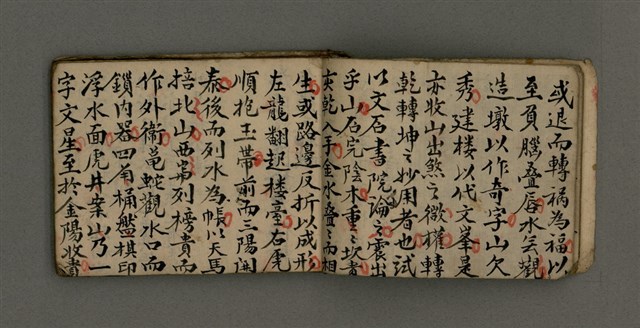 或退而轉禍為福以
至頁腦疊唇水云觀
造墩以作奇字山欠
秀建楼以代文峯是
亦收山出煞之微權轉
乾轉坤之妙用者也試
以文石書院論之震出
乎山石完陰木重之坎者
寅乾入手金水疊之而相
生或路邊反折以成形
左龍翻起楼臺右虎
順抱玉帶前而三陽開
泰後而列水為帳以天馬
掊北山西常列榜貴而
作外衛龜蛇觀水口而
鎖內器四旬桶盤棋印
浮水面虎井案山乃一
字文星至於金陽收